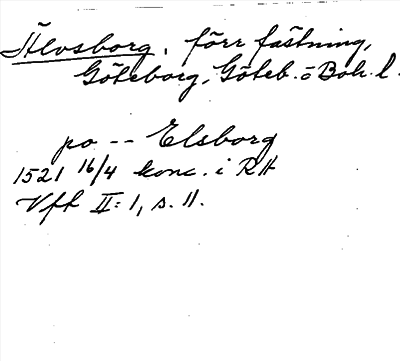 Älvsborg, förr fästning,
Göteborg, Göteb. o Boh. l.
po -- Elsborg
1521 16/4 konc. i RA
Vfh II:1, s. 11.